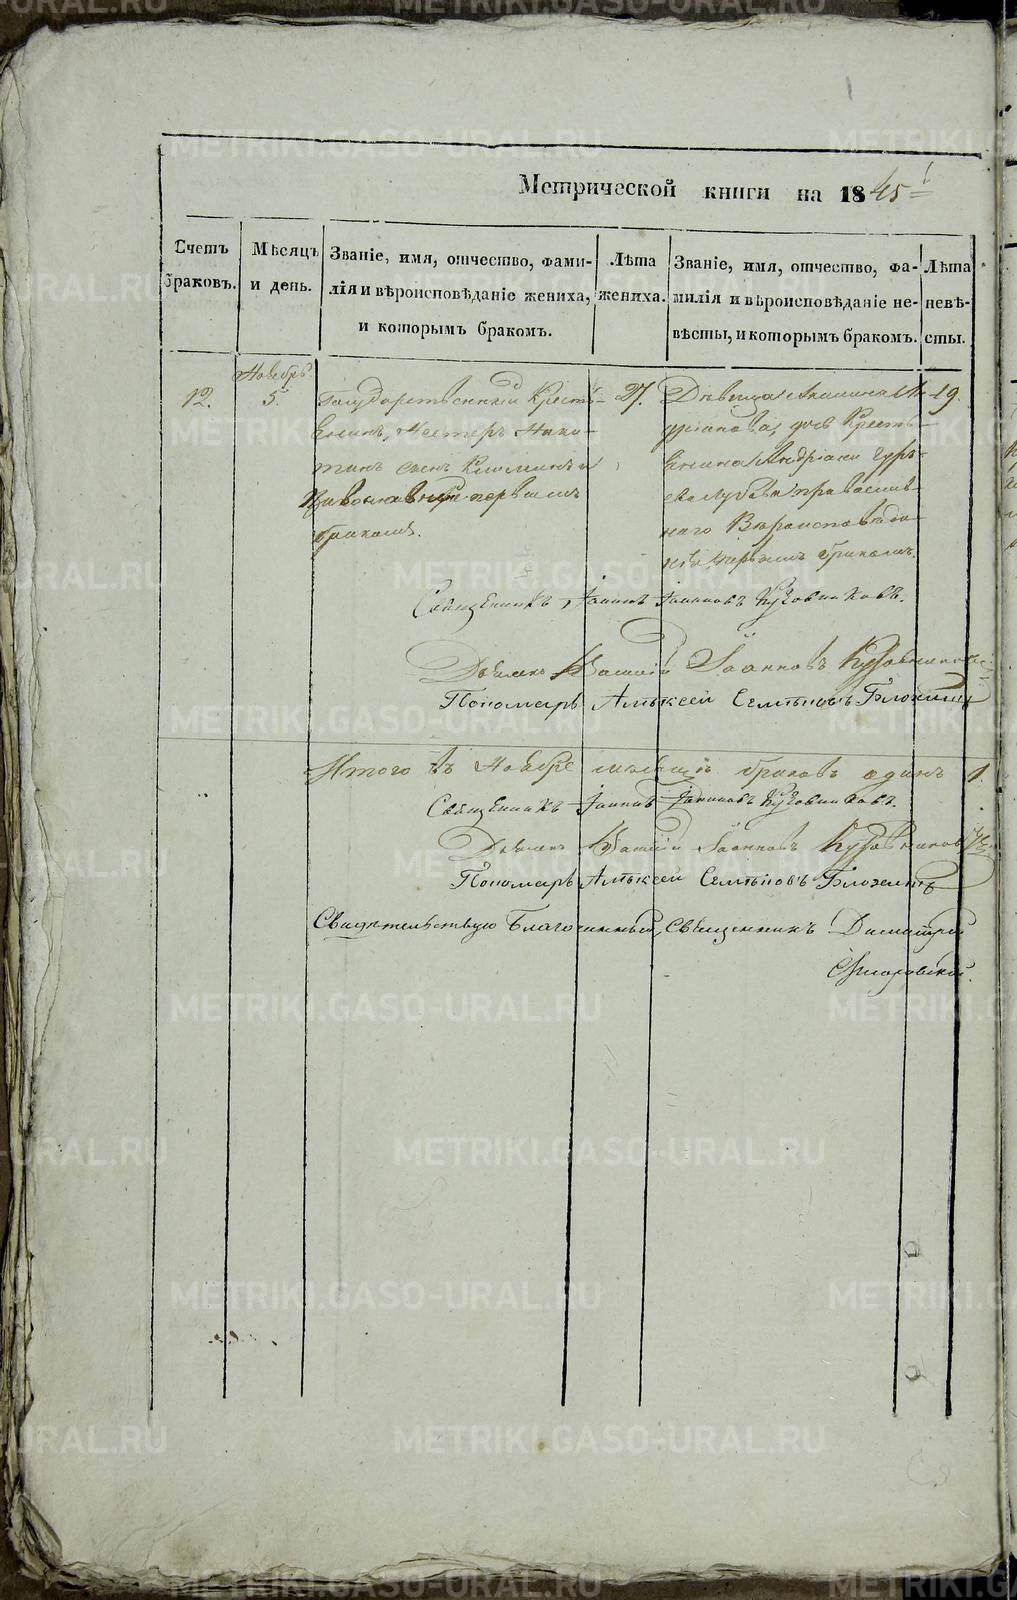 Метрической книги на 1845
Счетъ браковъ.
Мѣсяцъ и день.
Званіе, имя, отчество, фами-
лія и вѣроисповѣданіе жениха,
и которымъ бракомъ.
Лѣта
жениха.
Званіе, имя, отчество, фа-
милія и вѣроисповѣданіе не-
вѣсты, и которымъ бракомъ.
Лѣта
невѣ-
сты.
Ноябрь
12.
5.
Государственный Кресть-
янинъ, Нестеръ Ники-
тинъ сынъ
первымъ
бракомъ.
27.
Дѣвица Акилина Ан-
дреянова, дочь Кресть-
янина
православ-
наго Вѣроисповѣда-
нія первымъ бракомъ.
19.
Священникъ Іоаннъ Іоанновъ Кузовниковъ.
Дьячекъ Василій Іоанновъ Кузовниковъ
Пономарь Алѣксей Семѣновъ
Итого въ Ноябре мѣсяцѣ браковъ одинъ 1.
Священникъ Іоаннъ Іоанновъ Кузовниковъ.
Дьячекъ Василій Іоанновъ Кузовниковъ
Пономарь Алѣксей Семѣновъ
Свидѣтельствую Благочинный, Священникъ Димитрій
METRIKI.GASO-URAL.RU